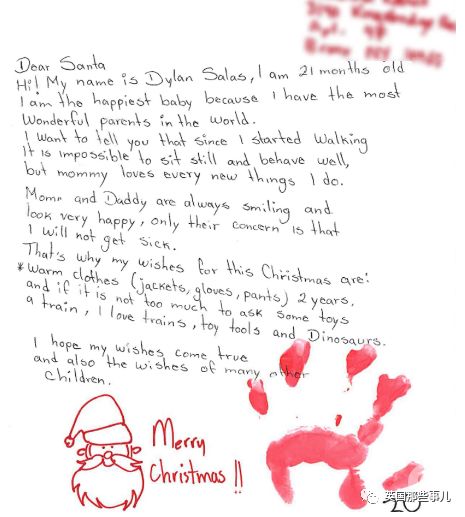 Dear Santa
Hi! My name is Dylan Salas, I am 21 months old
I am the happiest baby because I have the most
Wonderful parents in the world.
I want to tell you that since I started walking
It is impossible to sit still and behave well,
but mommy loves every new things I do.
Mome and Daddy are always smiling and
look very happy, only their concern is that
I will not get sick.
That's why my wishes for this Christmas are:
*Warm clothes (jackets, gloves, pants) 2 years.
and if it is not too much to ask some toys
a train, I love trains, toy tools and Dinosaurs.
I hope my wishes come true
and also the wishes of many other
Children.
Merry
Christmas!!
英国那些事儿
20